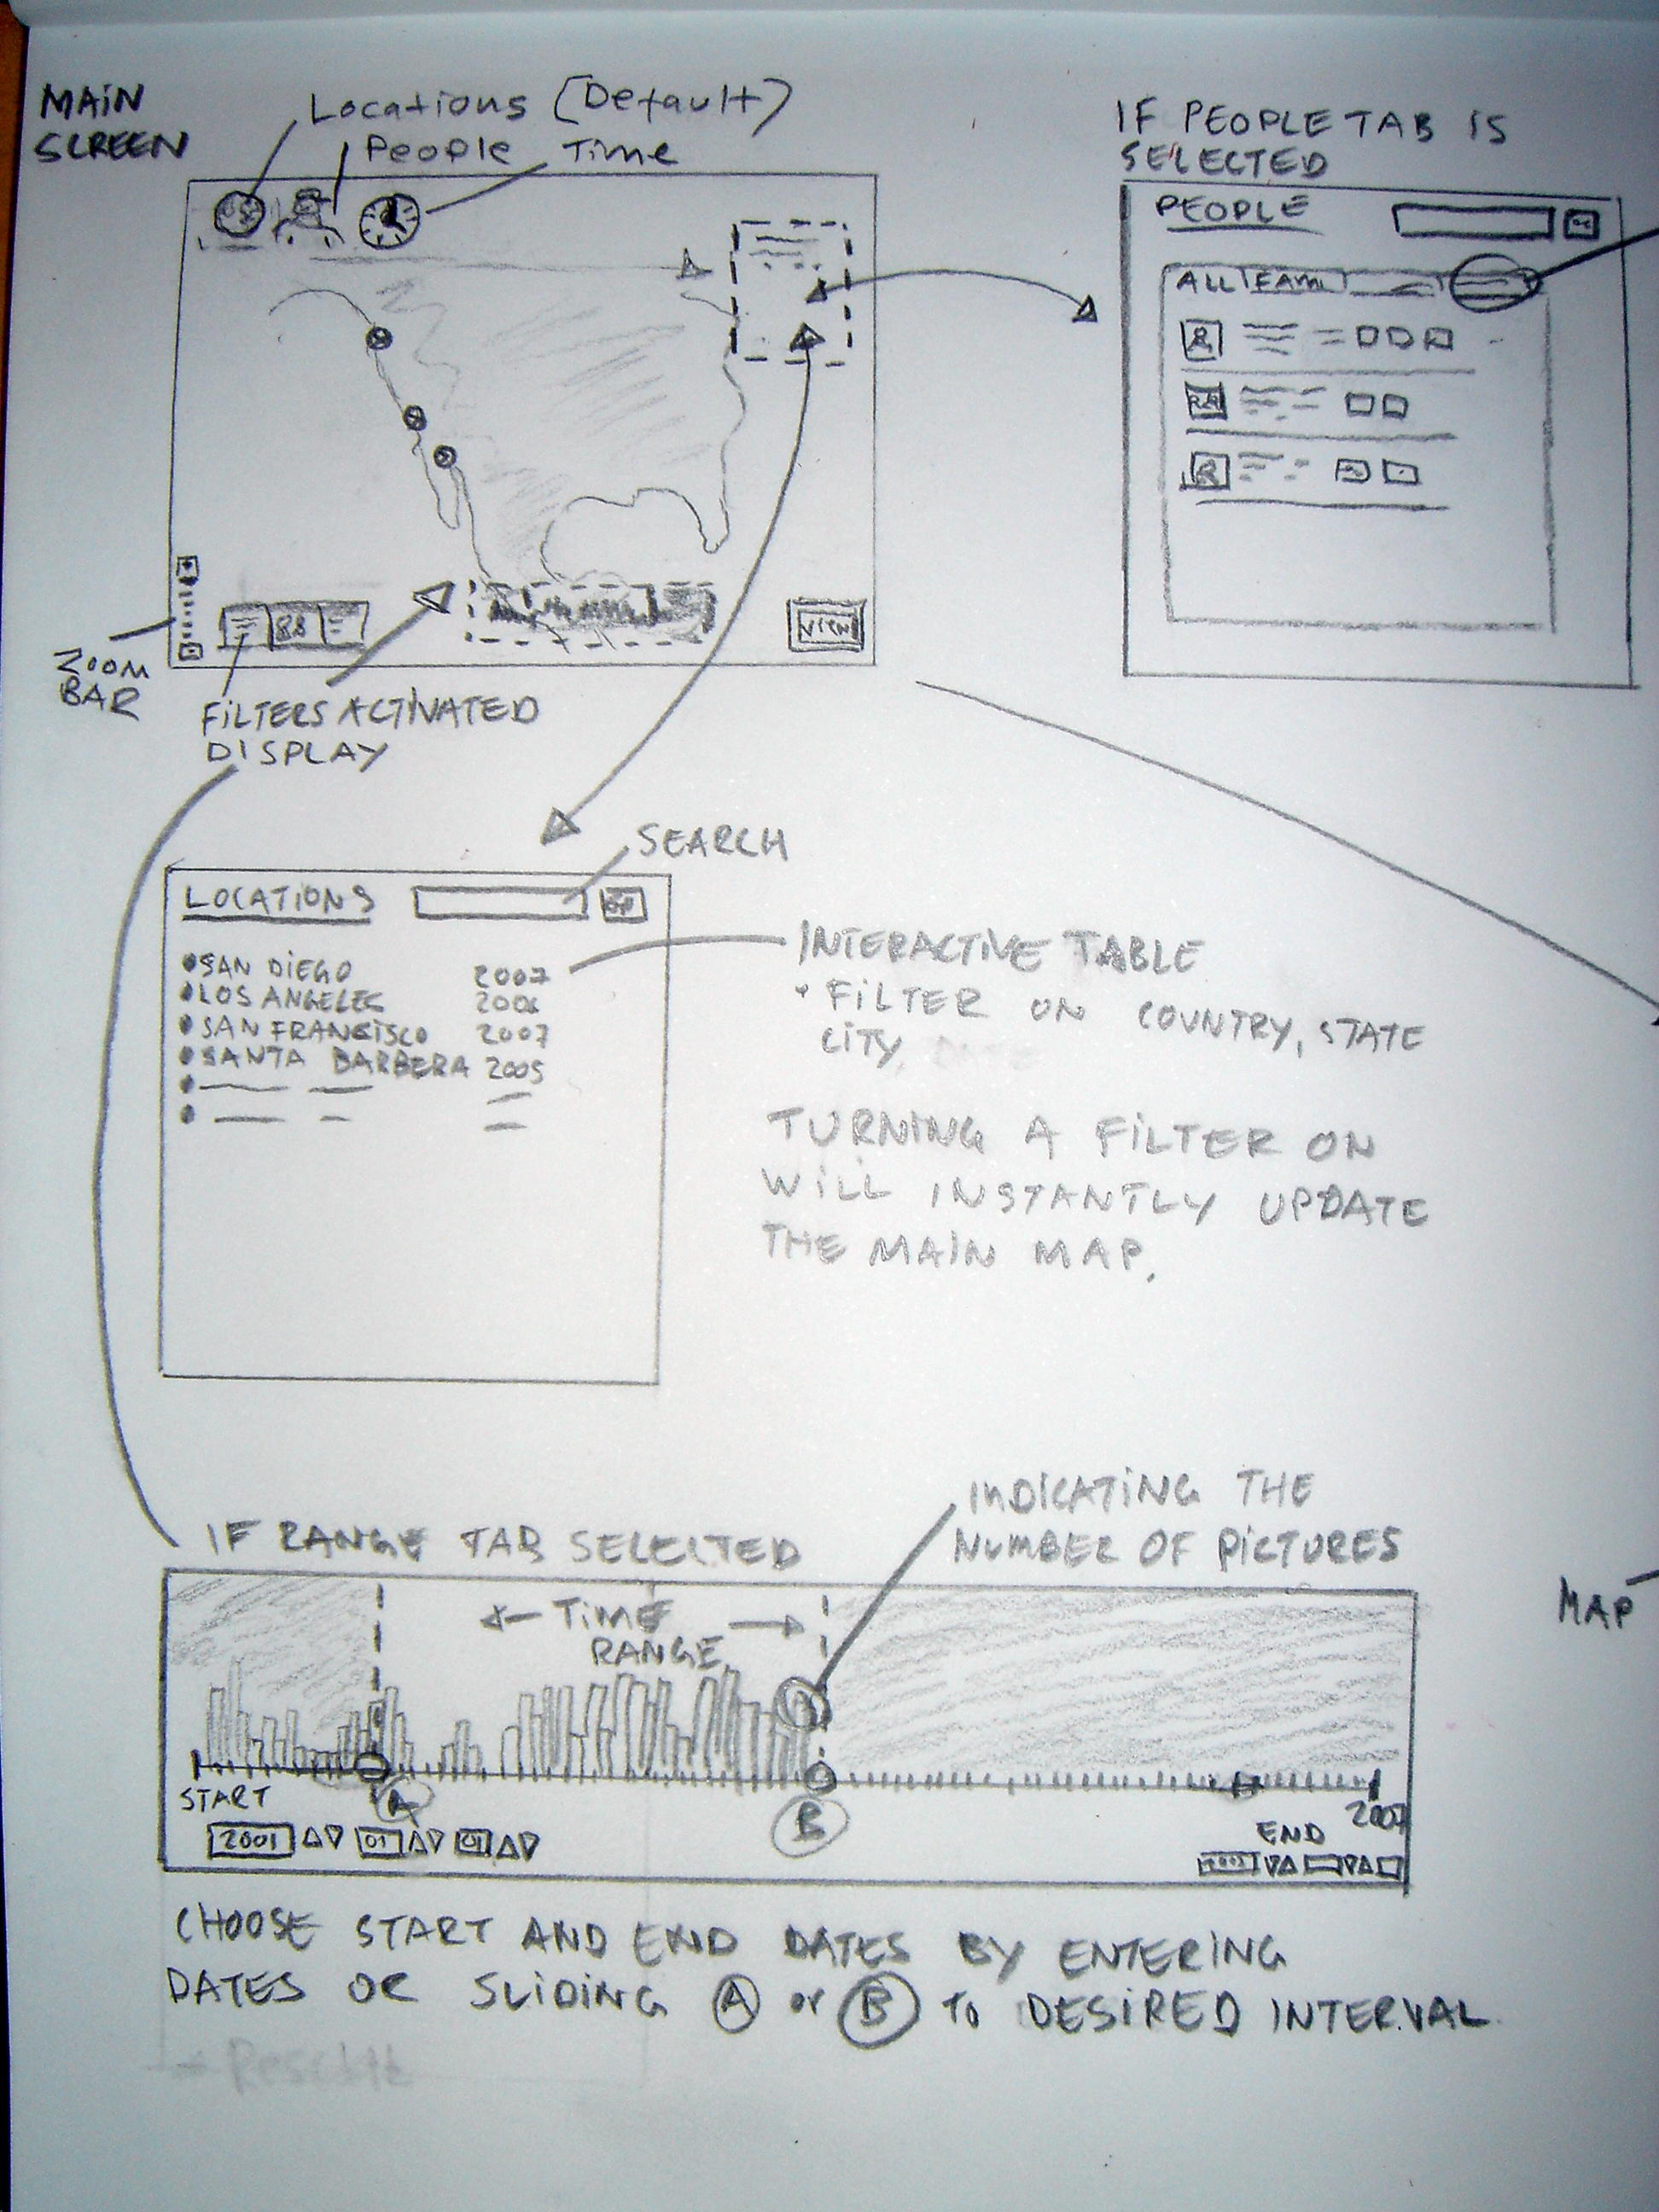 MAIN
SCREEN
Locations (Default)
People
Time
IF PEOPLE TAB IS
SELECTED
PEOPLE
ALL FAM
VIEW
ZOOM
BAR
FILTERS ACTIVATED
DISPLAY
SEARCH
LOCATIONS
SAN DIEGO 2007
LOS ANGELES 2006
SAN FRANCISCO 2007
SANTA BARBERA 2005
INTERACTIVE TABLE
• FILTER ON COUNTRY, STATE
CITY, DATE
TURNING A FILTER ON
WILL INSTANTLY UPDATE
THE MAIN MAP.
INDICATING THE
NUMBER OF PICTURES
IF RANGE TAB SELECTED
MAP
TIME
RANGE
START
A
B
2007
END
2001 01 01
CHOOSE START AND END DATES BY ENTERING
DATES OR SLIDING A or B TO DESIRED INTERVAL